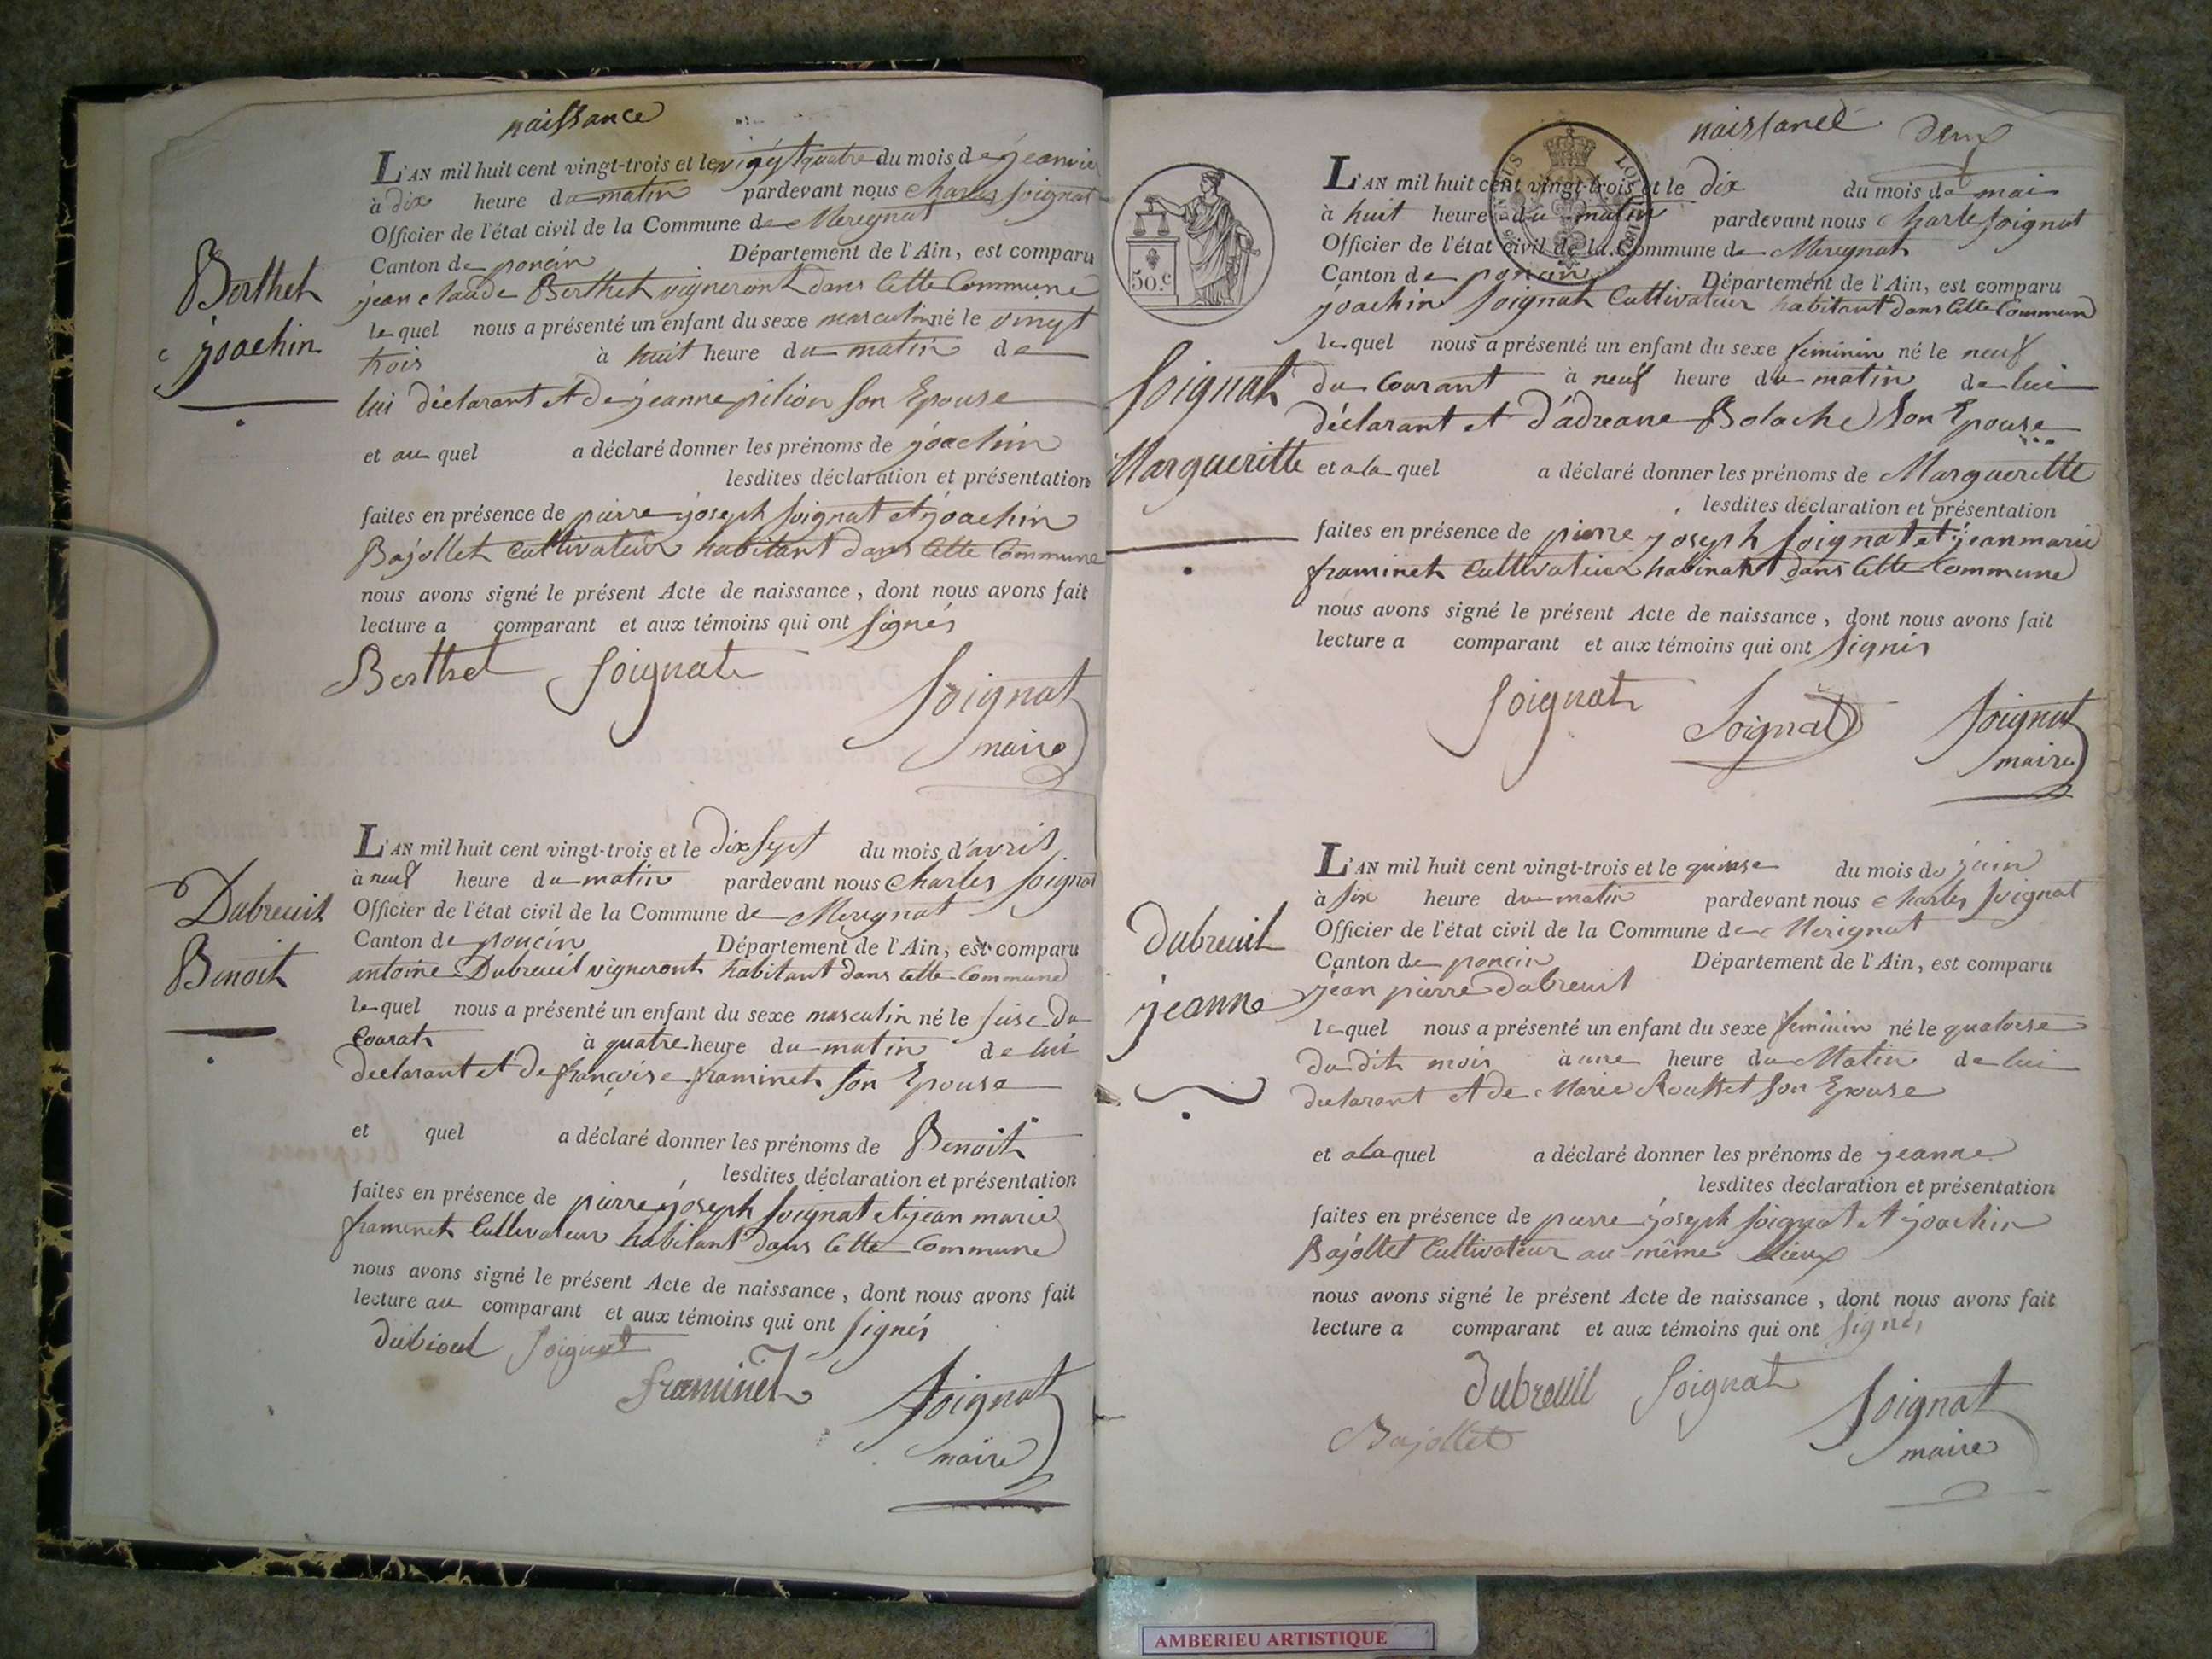 naissance
L'AN mil huit cent vingt-trois et le vingt quatre du mois de jeanvier
à dix heure du matin pardevant nous Charles Soignat
Officier de l'état civil de la Commune de Merignat
Canton de poncin Département de l'Ain, est comparu
jean claude Berthet vigneront dans Cette Commune
Berthet
joachin
lequel nous a présenté un enfant du sexe masculin né le vingt
trois à huit heure du matin de
lui déclarant et de jeanne pilion son Epouse
et au quel a déclaré donner les prénoms de joachin
lesdites déclaration et présentation
faites en présence de pierre joseph soignat et joachin
Bajollet Cultivateur habitant dans Cette Commune
nous avons signé le présent Acte de naissance, dont nous avons fait
lecture a comparant et aux témoins qui ont signés
Berthet Soignat
Soignat
maire
L'AN mil huit cent vingt-trois et le dix sept du mois d'avril
à neuf heure du matin pardevant nous Charles Soignat
Officier de l'état civil de la Commune de Merignat
Canton de poncin Département de l'Ain, est comparu
antoine Dubreuil vigneront habitant dans Cette Commune
Dubreuil
Benoit
lequel nous a présenté un enfant du sexe masculin né le seise du
Courat à quatre heure du matin de lui
declarant et De françoise framinet son Epouse
et quel a déclaré donner les prénoms de Benoit
lesdites déclaration et présentation
faites en présence de pierre joseph soignat et jean marie
framinet Cultivateur habitant dans Cette Commune
nous avons signé le présent Acte de naissance, dont nous avons fait
lecture au comparant et aux témoins qui ont signés
Soignat
framinet
Soignat
maire
naissance deux
L'AN mil huit cent vingt-trois et le dix du mois de mai
à huit heure du matin pardevant nous Charle Soignat
Officier de l'état civil de la Commune de Merignat
Canton de poncin Département de l'Ain, est comparu
joachin Soignat Cultivateur habitant dans Cette Commun
50.c
Soignat
Margueritte
lequel nous a présenté un enfant du sexe feminin né le neuf
du Courant à neuf heure du matin de lui
déclarant et d'adreane Bolache son Epouse
et a la quel a déclaré donner les prénoms de Margueritte
lesdites déclaration et présentation
faites en présence de pierre joseph soignat et jean marie
framinet Cultivateur habinant dans Cette Commune
nous avons signé le présent Acte de naissance, dont nous avons fait
lecture a comparant et aux témoins qui ont signés
Soignat Soignat Soignat
maire
L'AN mil huit cent vingt-trois et le quinse du mois de juin
à six heure du matin pardevant nous Charles Soignat
Officier de l'état civil de la Commune de Merignat
Canton de poncin Département de l'Ain, est comparu
jean pierre dubreuil
dubreuil
jeanne
lequel nous a présenté un enfant du sexe feminin né le quatorse
du dit mois à une heure du Matin de lui
declarant et de Marie Rousset son Epouse
et a la quel a déclaré donner les prénoms de jeanne
lesdites déclaration et présentation
faites en présence de pierre joseph soignat et joachin
Bajollet Cultivateur au même Lieux
nous avons signé le présent Acte de naissance, dont nous avons fait
lecture a comparant et aux témoins qui ont signés
dubreuil Soignat
Bajollet
Soignat
maire
AMBERIEU ARTISTIQUE